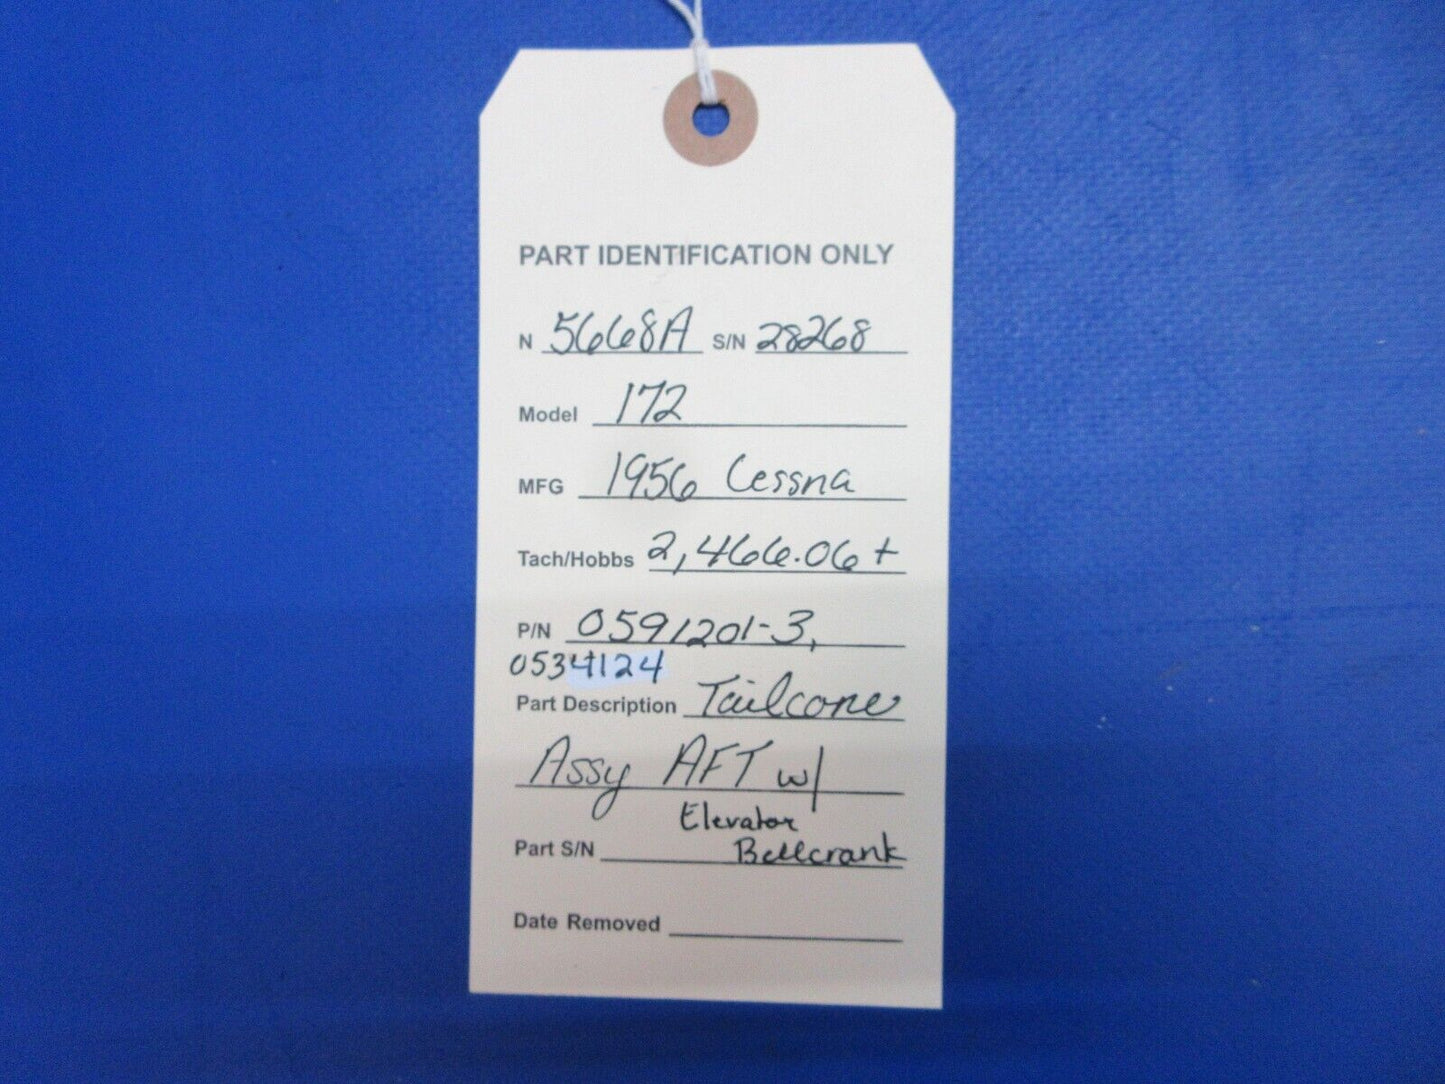 PART IDENTIFICATION ONLY
N 5668A S/N 28268
Model 172
MFG 1956 Cessna
Tach/Hobbs 2,466.06+
P/N 0591201-3,
0534124
Part Description Tailcone
Assy AFT w/
Elevator
Part S/N Bellcrank
Date Removed